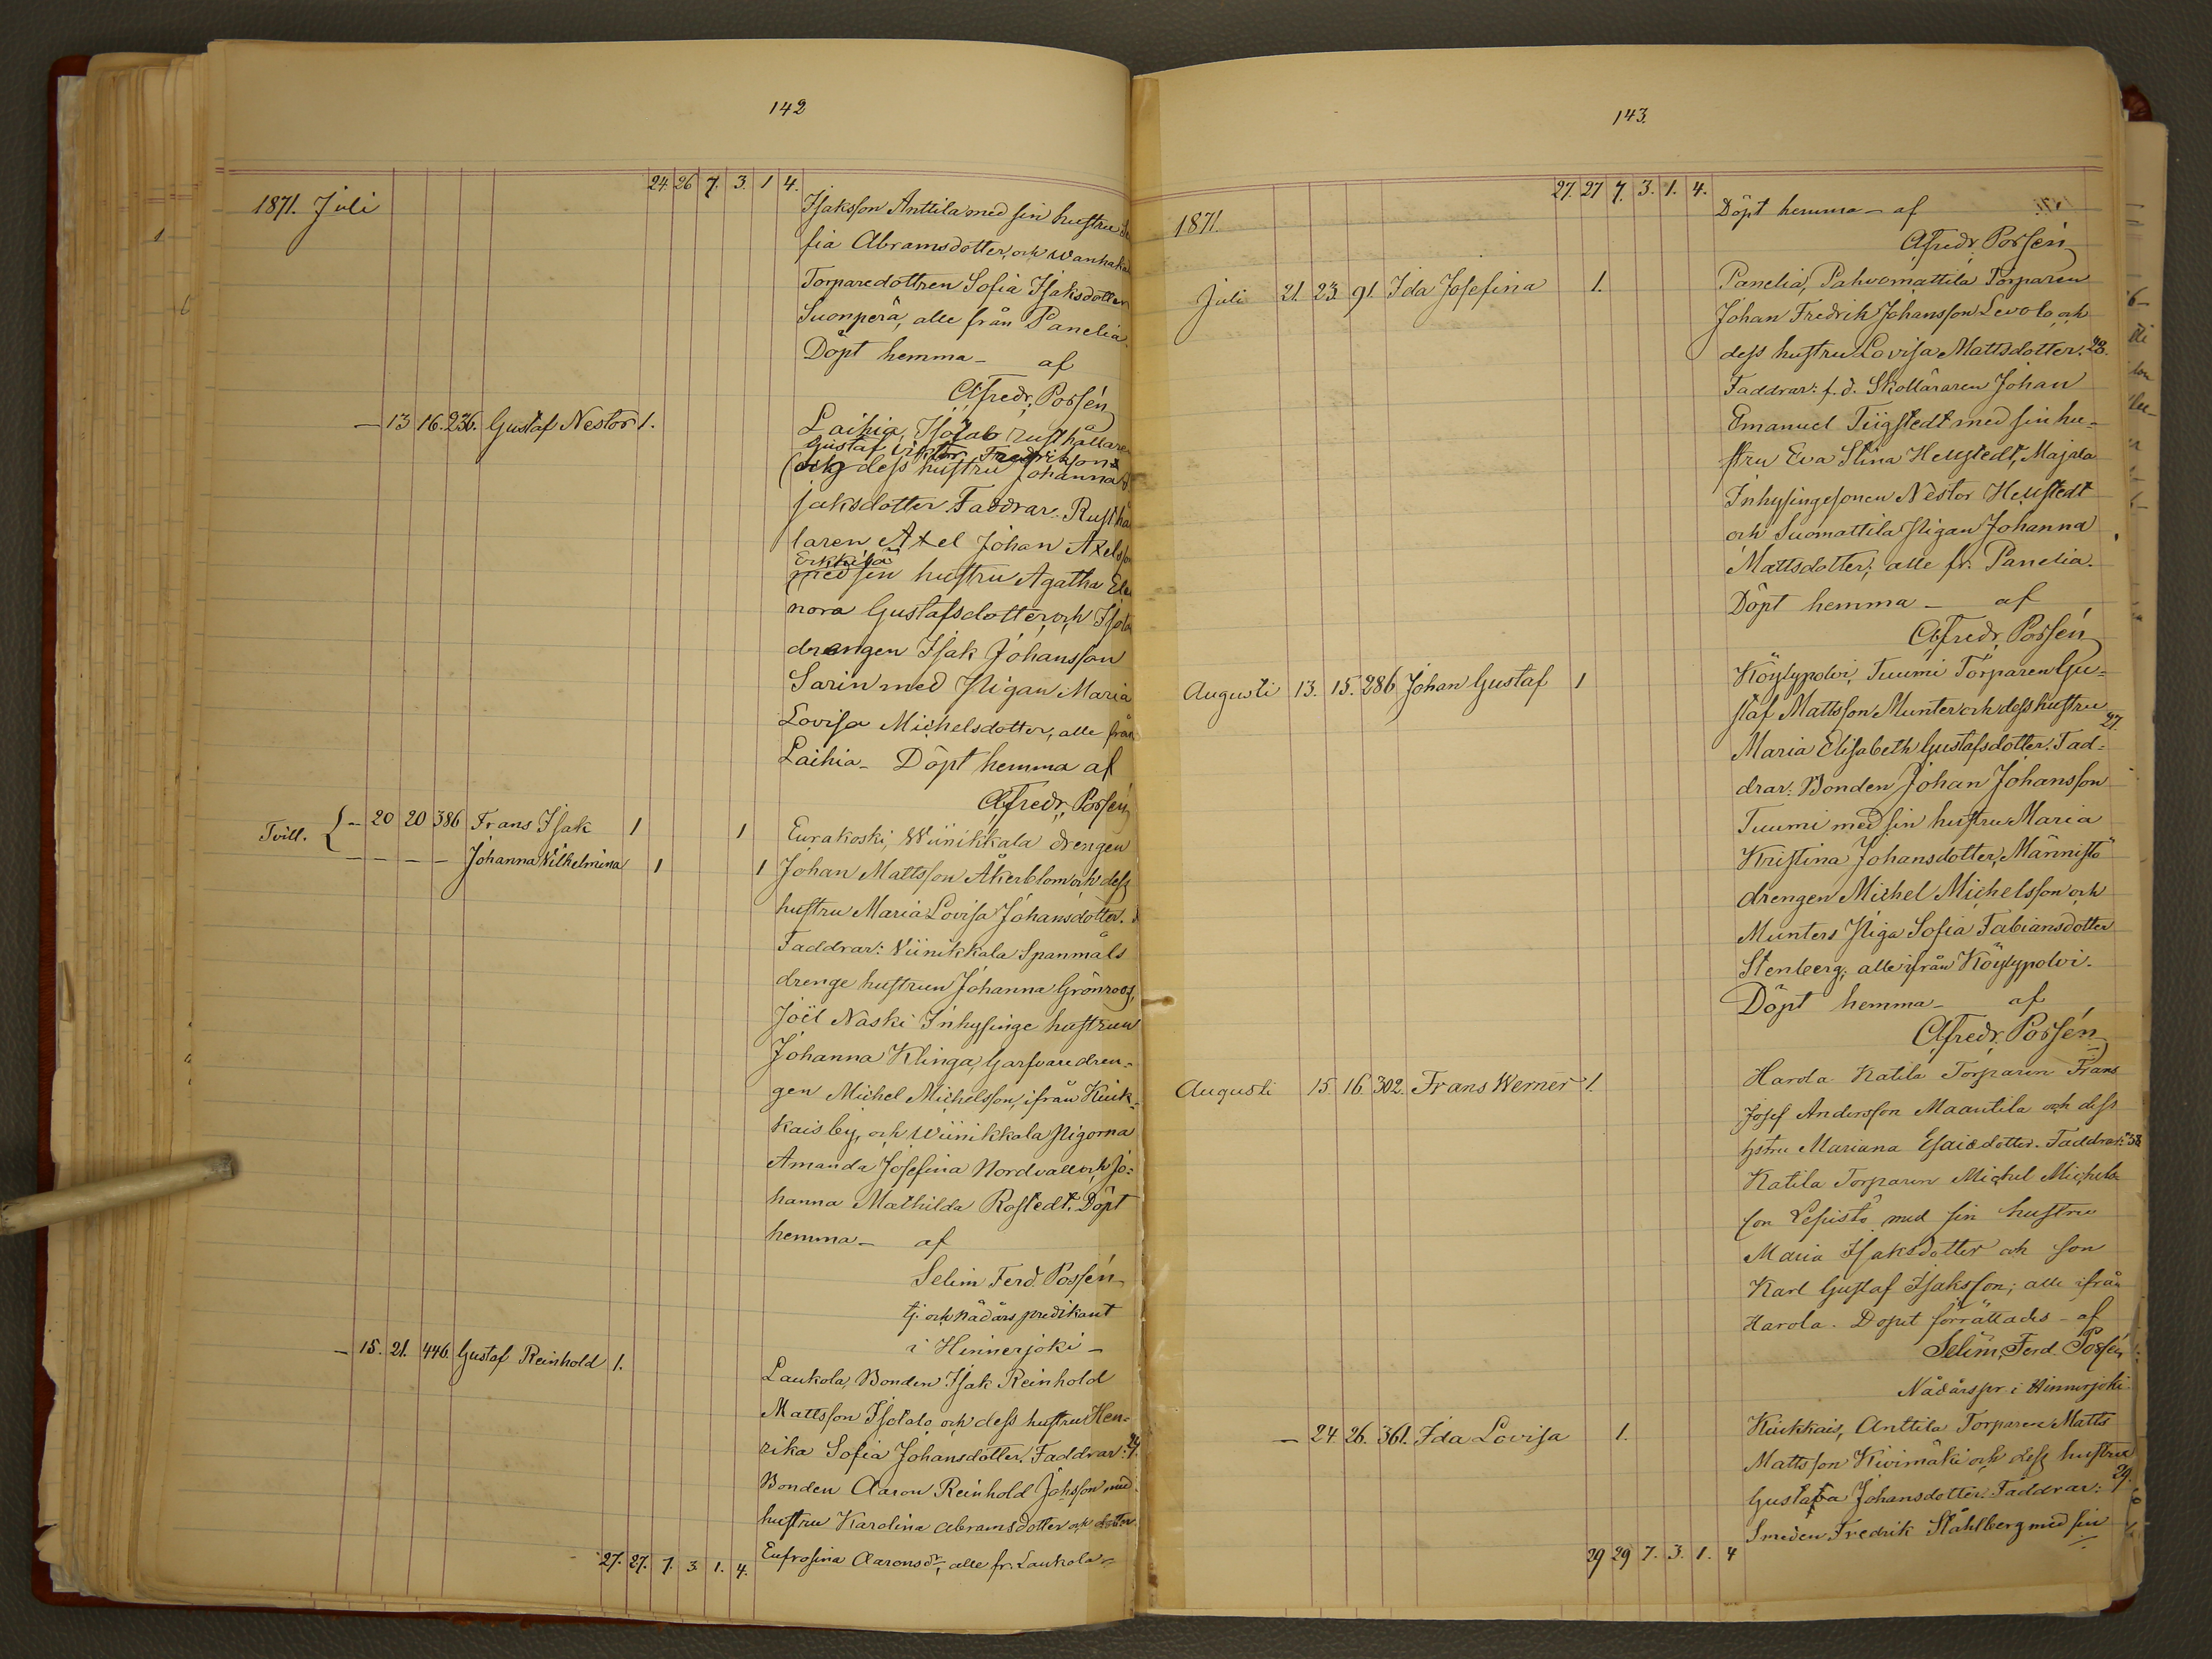 142
24. 26 7. 3. 1 4.
1871. Juli
Isaksson Anttila med sin hustru
fia Abramsdotter, och Wanhaka
Torparedottren Sofia Isaksdotter
Suonperä, alle från Panelia.
Döpt hemma — af
Alfredr. Possén
— 13 16. 236. Gustaf Nestor 1.
Laihia, Isotalo rusthållare
Gustaf Viktor Fredriksson
och dess hustru Johanna
saksdotter. Faddrar: Rusthål
laren Axel Johan Axelsson
Erkkilä
med sin hustru Agatha Eleo
nora Gustafsdotter, och Isotalo
drengen Isak Johansson
Sarin med Pigan Maria
Lovisa Michelsdotter, alle från
Laihia — Döpt hemma af
Alfredr. Possén
Tvill. { — 20 20 386 Frans Isak 1 1
— — — — Johanna Vilhelmina 1 1
Eurakoski, Wiinikkala drengen
Johan Mattsson Åkerblom och dess
hustru Maria Lovisa Johansdotter.
Faddrar: Viinikkala Spanmåls
drenge hustrun Johanna Grönroos,
Joël Naski Inhysinge hustrun
Johanna Klinga, Garfvaredren-
gen Michel Michelsson, ifrån Kiuk-
kais by, och Wiinikkala Pigorna
Amanda Josefina Nordvall och Jo-
hanna Mathilda Rostedt. Döpt
hemma — af
Selim Ferd. Possén
tj. och nådårs predikant
i Hinnerjoki —
— 15. 21. 446. Gustaf Reinhold 1.
Laukola, Bonden Isak Reinhold
Mattsson Isotalo och dess hustru Hen-
rika Sofia Johansdotter. Faddrar:
Bonden Aaron Reinhold Johsson med
hustru Karolina Abramsdotter och dotter
Eufrosina Aaronsdr, alle fr. Laukola
27. 27. 7. 3. 1. 4.
143.
27. 27 7. 3. 1. 4.
1871.
Döpt hemma — af
Alfredr. Possén
Juli 21. 23. 91. Ida Josefina 1.
Panelia, Pahvomattila Torparen
Johan Fredrik Johansson Levola och
dess hustru Lovisa Mattsdotter. 28.
Faddrar: f. d. Skolläraren Johan
Emanuel Tiigstedt med sin hu-
stru Eva Stina Hellstedt, Majala
Inhysingesonen Nestor Hellstedt
och Suomattila Pigan Johanna
Mattsdotter; alle fr. Panelia.
Döpt hemma — af
Alfredr. Possén
Augusti 13. 15. 286 Johan Gustaf 1
Köylypolvi, Tuumi Torparen Gu-
staf Mattsson Munter och dess hustru
27.
Maria Elisabeth Gustafsdotter. Fad-
drar: Bonden Johan Johansson
Tuumi med sin hustru Maria
Kristina Johansdotter, Männistö
drengen Michel Michelsson och
Munters Piga Sofia Fabiansdotter
Stenberg, alle ifrån Köylypolvi.
Döpt hemma — af
Alfredr. Possén
Augusti 15 16 302. Frans Werner 1.
Harola Katila Torparen Frans
Josef Andersson Maantila och dess
hstru Mariana Esaiedotter. Faddrar: 38
Katila Torparen Michel Michels-
son Lepistö med sin hustru
Maria Isaksdotter och son
Karl Gustaf Isaksson; alle ifrån
Harola. Dopet förrättades — af
Selim Ferd Possén
Nådårspr. i Hinnerjoki
— 24 26. 361. Ida Lovisa 1.
Kiukkais, Anttila Torparen Matts
Mattsson Kivimäki och dess hustru
29.
Gustafva Johansdotter. Faddrar:
Smeden Fredrik Ståhlberg med sin
29 29 7. 3. 1. 4